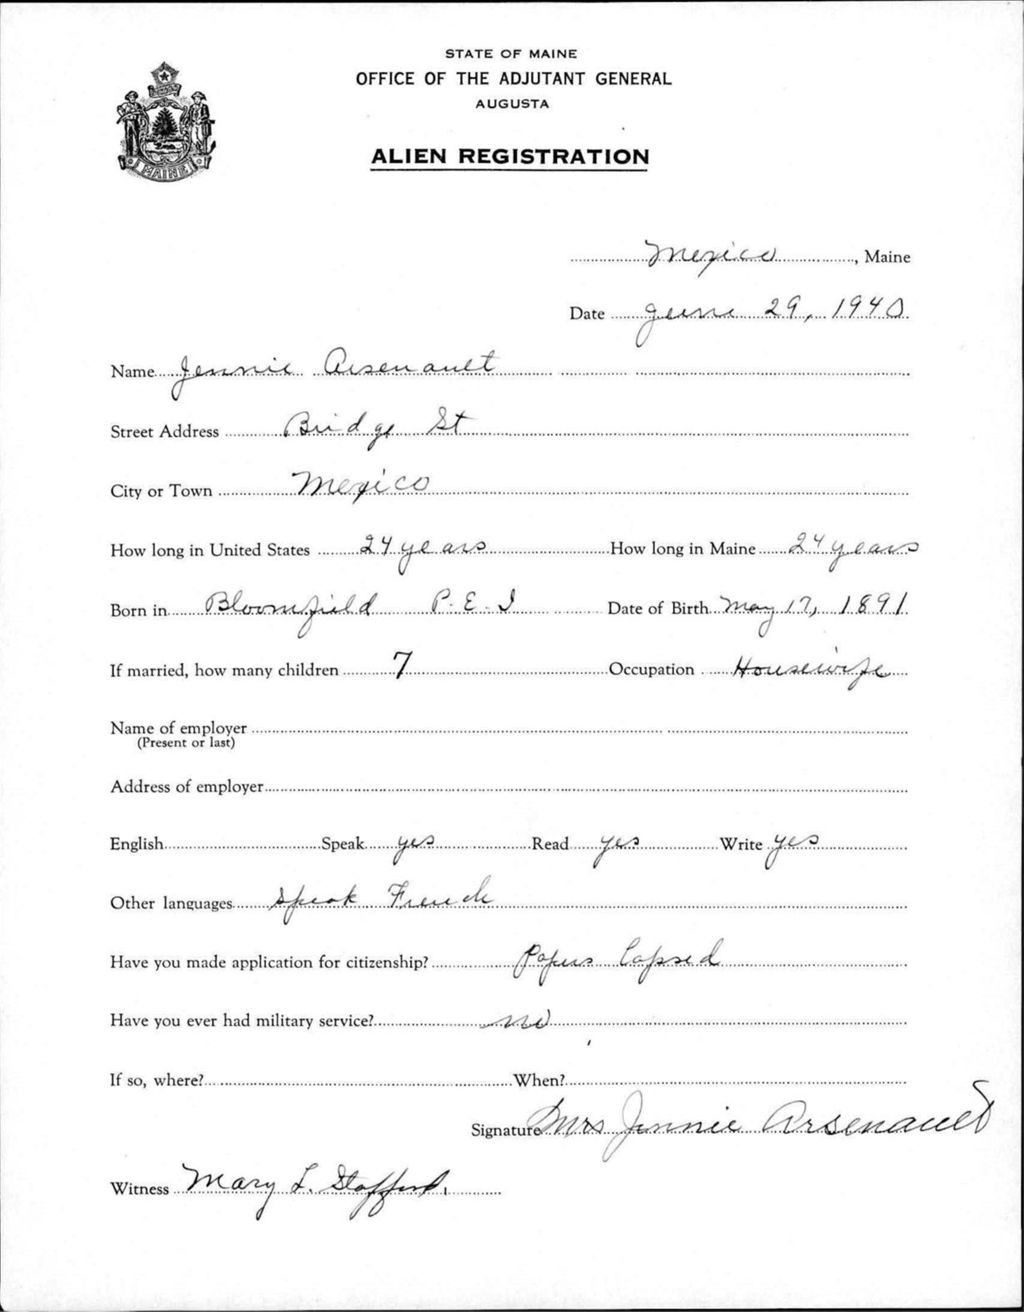 STATE OF MAINE
OFFICE OF THE ADJUTANT GENERAL
AUGUSTA
ALIEN REGISTRATION
MAINE
Mexico, Maine
Date June 29, 1940
Name Jennie Arsenault
Street Address Bridge St
City or Town Mexico
How long in United States 24 years How long in Maine 24 years
Born in Bloomfield P.E.I Date of Birth May 17, 1891
If married, how many children 7 Occupation Housewife
Name of employer
(Present or last)
Address of employer
English Speak yes Read yes Write yes
Other languages Speak French
Have you made application for citizenship? Papers lapsed
Have you ever had military service? no
If so, where? When?
Signature Mrs Jennie Arsenault
Witness Mary L. Stafford